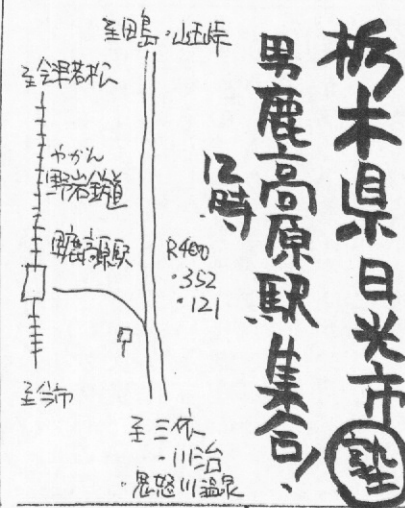 栃木県日光市塾
男鹿高原駅集合!
12時
至田島・山王峠
至会津若松
やがん
野岩鉄道
男鹿高原駅
R400
・352
・121
至今市
至三依
・川治
・鬼怒川温泉